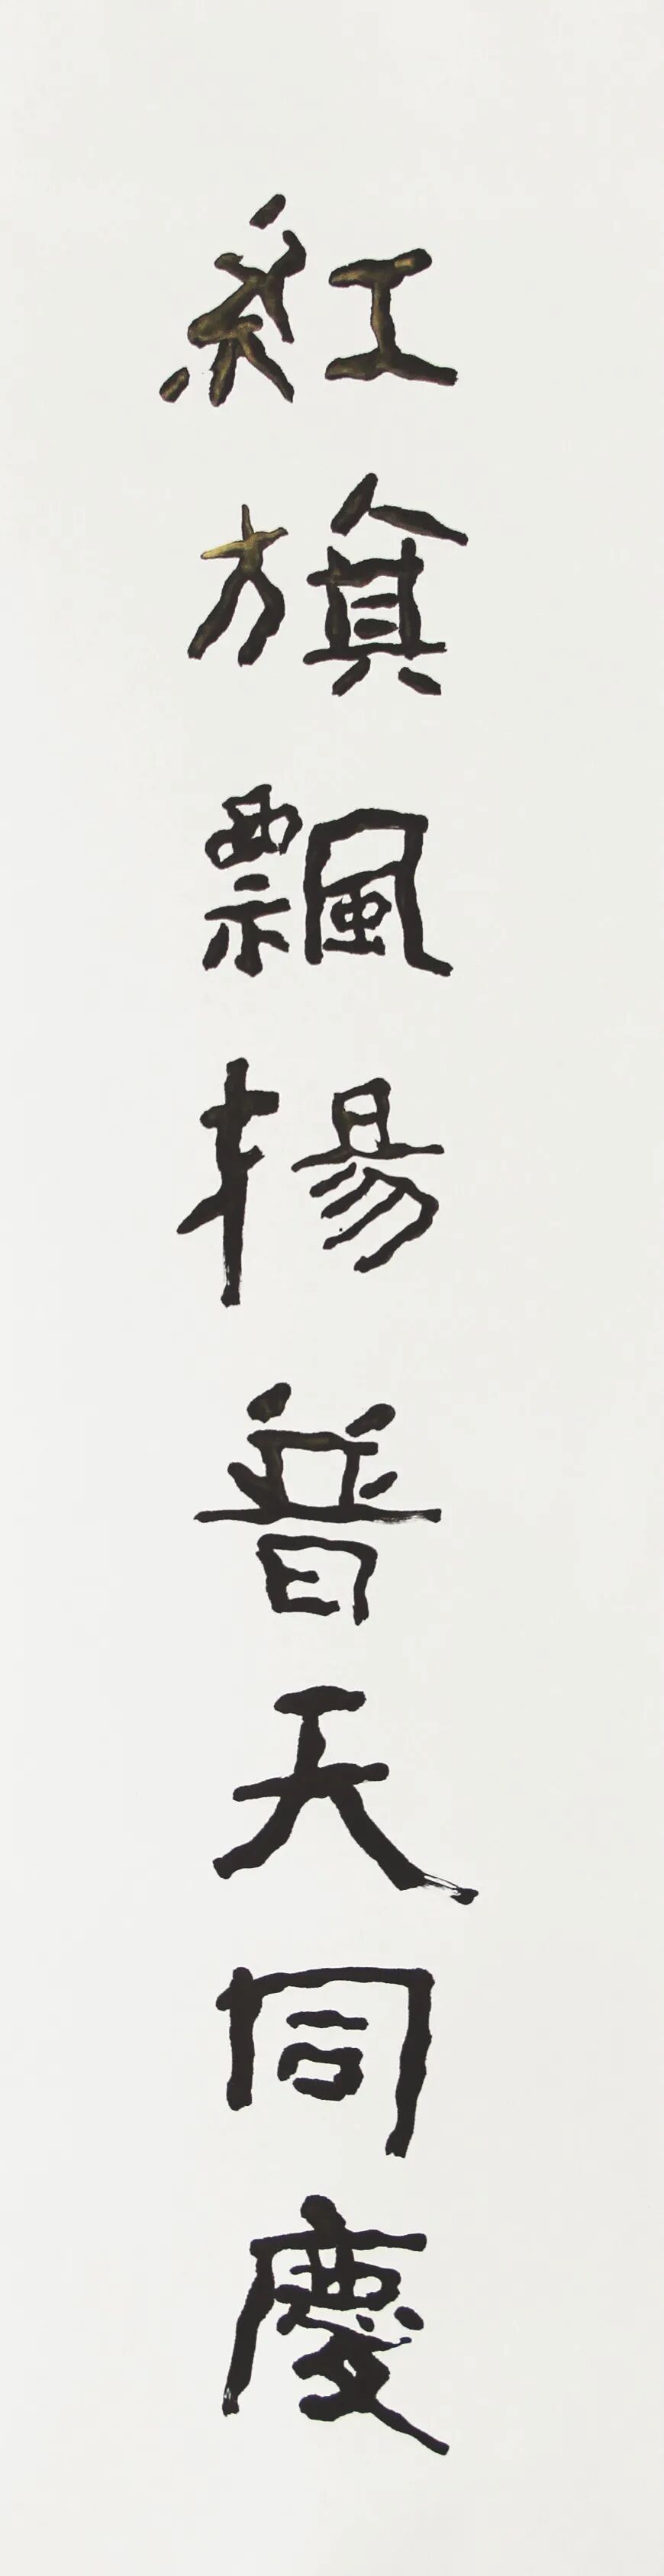 紅旗飄揚普天同慶